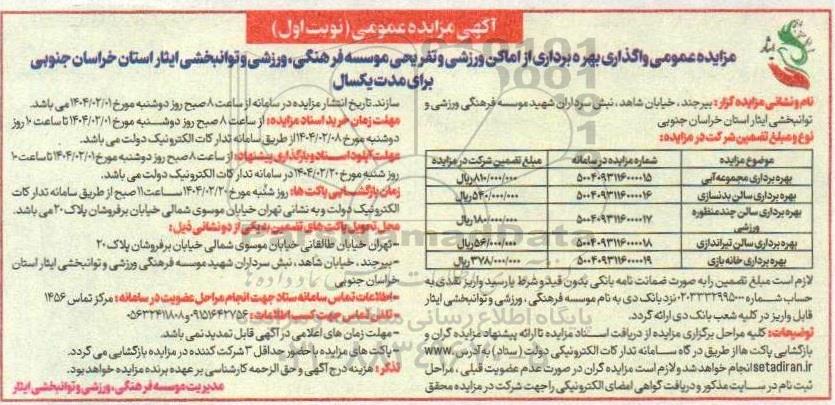 آگهی مزایده عمومی (نوبت اول)
مزایده عمومی واگذاری بهره برداری از اماکن ورزشی و تفریحی موسسه فرهنگی، ورزشی و توانبخشی ایثار استان خراسان جنوبی
برای مدت یکسال
ایثار
نام و نشانی مزایده گزار: بیرجند، خیابان شاهد، نبش سرداران شهید موسسه فرهنگی ورزشی و
توانبخشی ایثار استان خراسان جنوبی
نوع و مبلغ تضمین شرکت در مزایده:
موضوع مزایده شماره مزایده در سامانه مبلغ تضمین شرکت در مزایده
بهره برداری مجموعه آبی ۵۰۰۴۰۹۳۱۱۶۰۰۰۰۱۵ ۸۱۰/۰۰۰/۰۰۰ریال
بهره برداری سالن بدنسازی ۵۰۰۴۰۹۳۱۱۶۰۰۰۰۱۶ ۵۴۰/۰۰۰/۰۰۰ریال
بهره برداری سالن چند منظوره ورزشی ۵۰۰۴۰۹۳۱۱۶۰۰۰۰۱۷ ۱۸۰/۰۰۰/۰۰۰ریال
بهره برداری سالن تیراندازی ۵۰۰۴۰۹۳۱۱۶۰۰۰۰۱۸ ۵۶/۰۰۰/۰۰۰ریال
بهره برداری خانه بازی ۵۰۰۴۰۹۳۱۱۶۰۰۰۰۱۹ ۳۷۸/۰۰۰/۰۰۰ریال
لازم است مبلغ تضمین را به صورت ضمانت نامه بانکی بدون قید و شرط یا رسید واریز نقدی به
حساب شماره ۰۲۰۳۳۳۲۹۹۵۰۰۰ نزد بانک دی به نام موسسه فرهنگی، ورزشی و توانبخشی ایثار
قابل واریز در کلیه شعب بانک دی ارائه گردد.
توضیحات: کلیه مراحل برگزاری مزایده از دریافت اسناد مزایده تا ارائه پیشنهاد مزایده گران و
بازگشایی پاکت ها از طریق درگاه سامانه تدارکات الکترونیکی دولت (ستاد) به آدرس www.
setadiran.ir انجام خواهد شد و لازم است مزایده گران در صورت عدم عضویت قبلی، مراحل
ثبت نام در سایت مذکور و دریافت گواهی امضای الکترونیکی را جهت شرکت در مزایده محقق
سازند. تاریخ انتشار مزایده در سامانه از ساعت ۸ صبح روز دوشنبه مورخ ۱۴۰۴/۰۲/۰۱ می باشد.
مهلت زمان خرید اسناد مزایده: از ساعت ۸ صبح روز دوشنبه مورخ ۱۴۰۴/۰۲/۰۱ تا ساعت ۱۰ روز
دوشنبه مورخ ۱۴۰۴/۰۲/۰۸ از طریق سامانه تدارکات الکترونیک دولت می باشد.
مهلت آپلود اسناد و بارگذاری پیشنهاد: از ساعت ۸ صبح روز دوشنبه مورخ ۱۴۰۴/۰۲/۰۱ تا ساعت ۱۰
روز شنبه مورخ ۱۴۰۴/۰۲/۲۰ در سامانه تدارکات الکترونیک دولت می باشد.
زمان بازگشایی پاکت ها: روز شنبه مورخ ۱۴۰۴/۰۲/۲۰ ساعت ۱۱ صبح از طریق سامانه تدارکات
الکترونیک دولت و به نشانی تهران خیابان موسوی شمالی خیابان برفروشان پلاک ۲۰ می باشد.
محل تحویل پاکت های تضمین به یکی از دو نشانی ذیل:
- تهران خیابان طالقانی خیابان موسوی شمالی خیابان برفروشان پلاک ۲۰
- بیرجند، خیابان شاهد، نبش سرداران شهید موسسه فرهنگی ورزشی و توانبخشی ایثار استان
خراسان جنوبی
- اطلاعات تماس سامانه ستاد جهت انجام مراحل عضویت در سامانه: مرکز تماس ۱۴۵۶
- تلفن تماس جهت کسب اطلاعات: ۰۹۱۵۱۶۴۲۷۵۶ و ۰۵۶۳۲۴۱۱۸۰۸
- مهلت زمان های اعلامی در آگهی قابل تمدید نمی باشد.
- پاکت های مزایده با حضور حداقل ۳ شرکت کننده در مزایده بازگشایی می گردد.
تذکر: هزینه درج آگهی و حق الزحمه کارشناسی بر عهده برنده مزایده خواهد بود.
مدیریت موسسه فرهنگی، ورزشی و توانبخشی ایثار